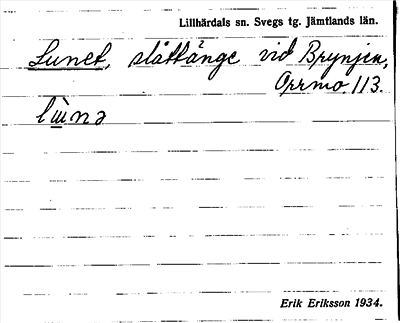 Lillhärdals sn. Svegs tg. Jämtlands län.
Lunet, slåttänge vid Brynjen,
Orrmo. 113.
lùnə
Erik Eriksson 1934.